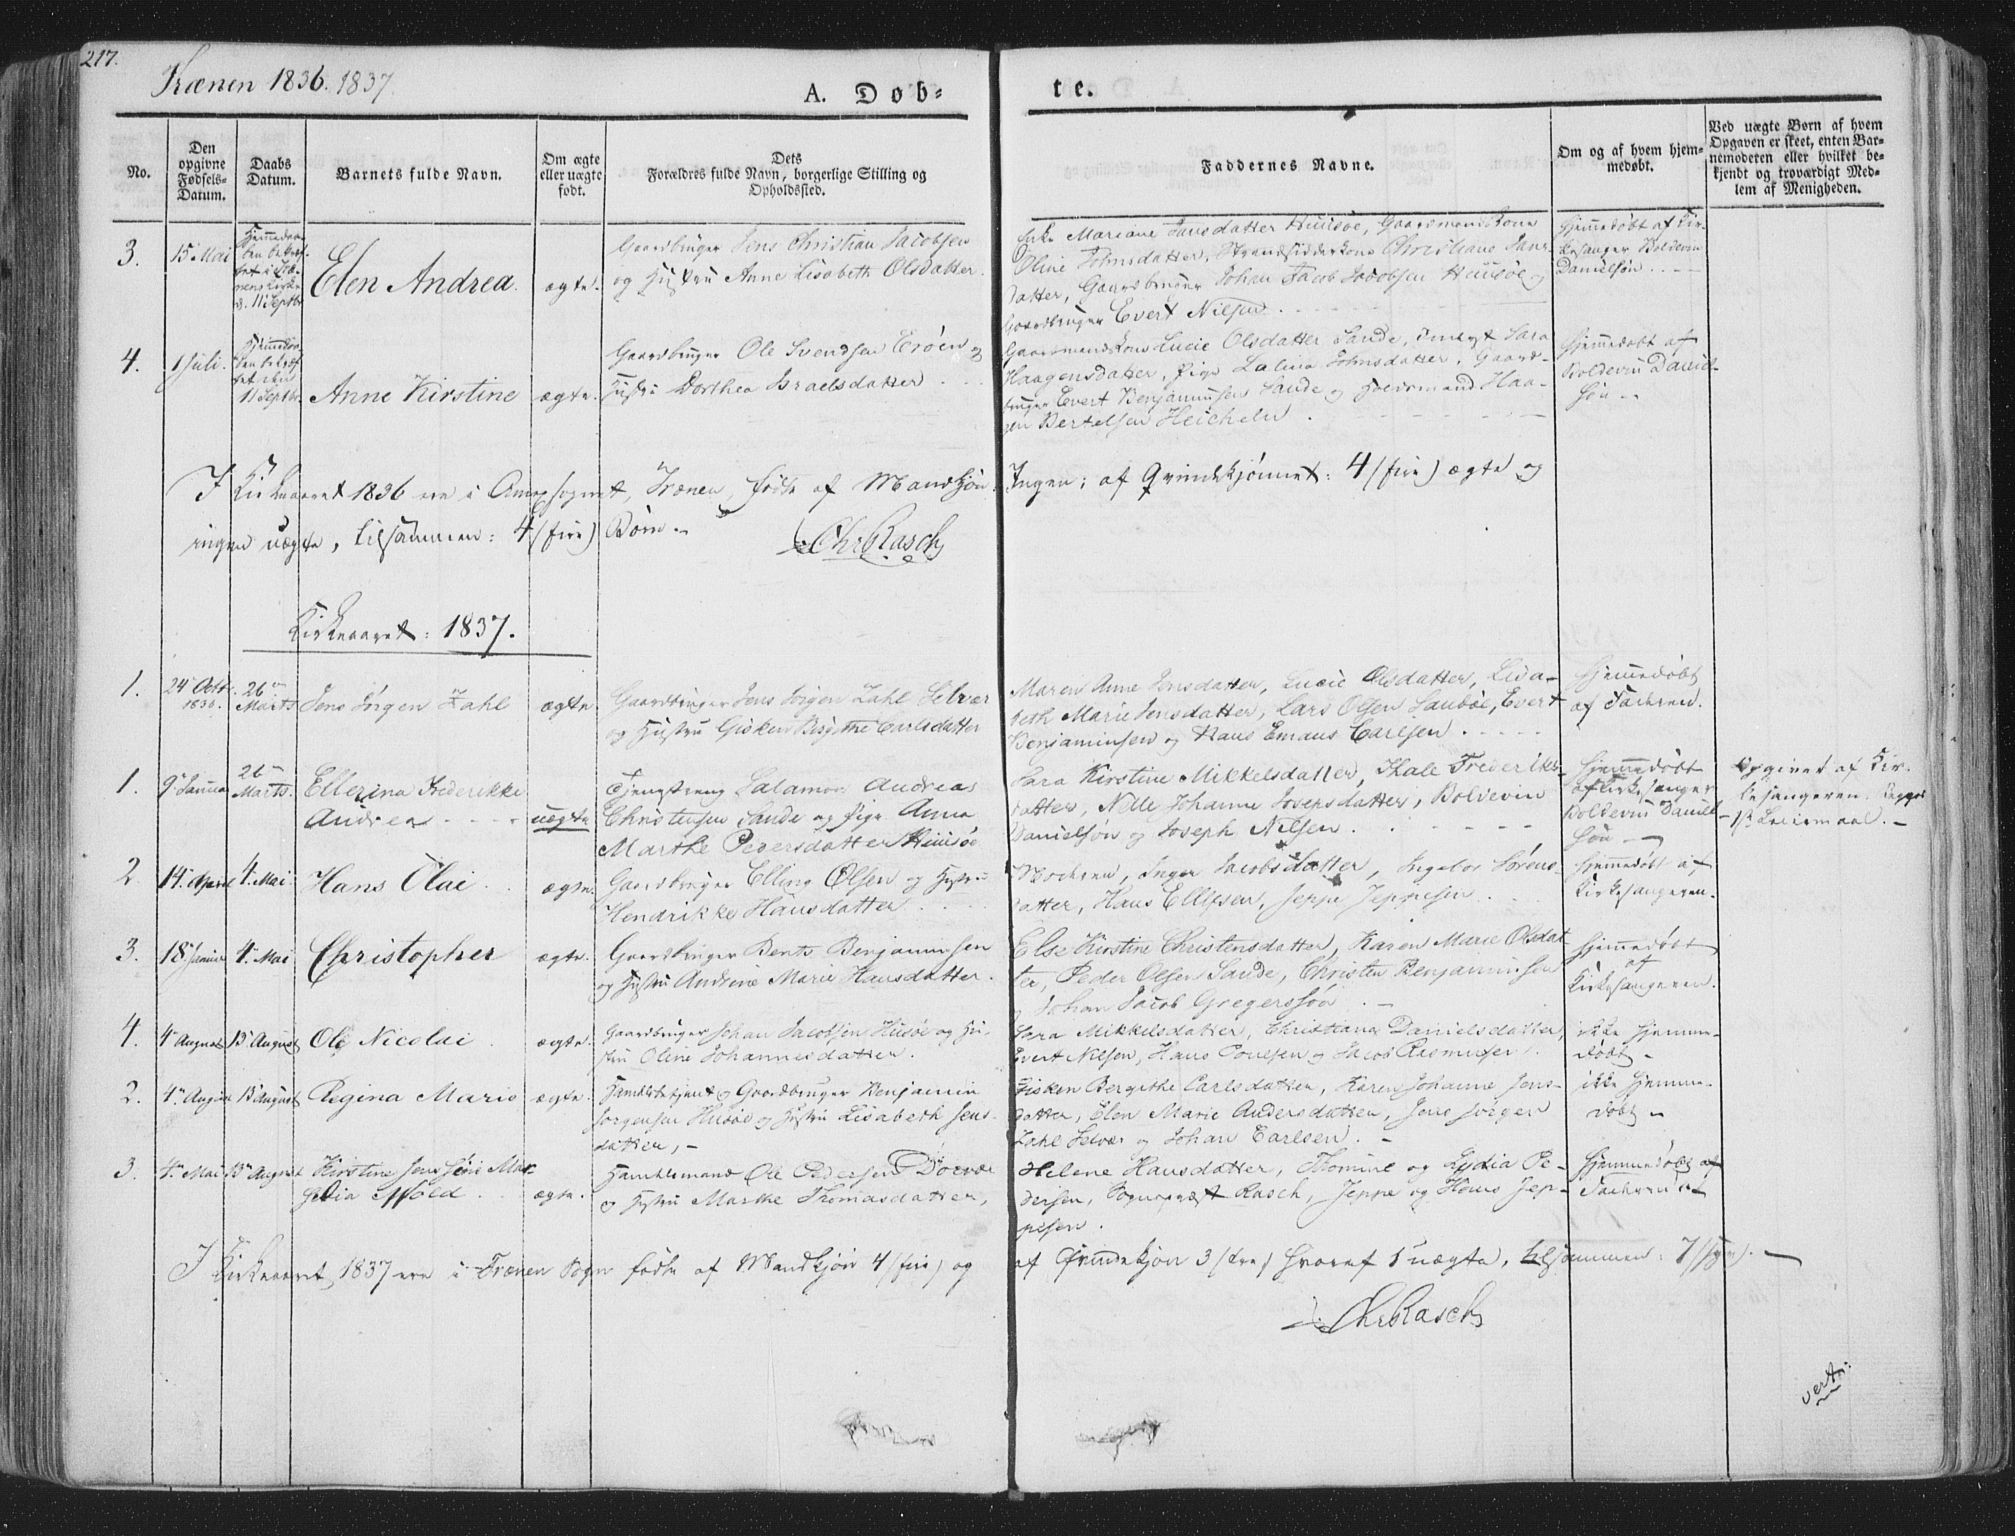 217.
Trænen 1836. 1837.
A. Døb-
te.
No.
Den opgivne Fødsels-Datum.
Daabs Datum.
Barnets fulde Navn.
Om ægte eller uægte født.
Dets Forældres fulde Navn, borgerlige Stilling og Opholdssted.
Faddernes Navne.
Om og af hvem hjemmedøbt.
Ved uægte Børn af hvem Opgaven er skeet, enten Barnemoderen eller hvilket bekjendt og troværdigt Medlem af Menigheden.
3. 15 Mai
11 Septbr
Elen Andrea. ægte.
Gaardbruger Jens Christian Jacobsen
og Hustru Anne Lisabeth Olsdatter.
Enke Mariane Jansdatter Huusøe, Gaardmandskone
Oline Johnsdatter, Strandsidderkone Christiane Jans-
datter, Gaardbruger Johan Jacob Jacobsen Huusøe og
Gaardbruger Evert Nilsen
Hjemmedøbt af Kir-
kesanger Boldevin
Danielsøn
4. 1 Juli.
11 Septbr.
Anne Kirstine ægte.
Gaardbruger Ole Svendsen Erøen og
Hustru Dorthea Israelsdatter
Gaardmandskone Lucie Olsdatter Sande, Sara
Haagensdatter, Pige Johnsdatter, Gaard-
bruger Evert Benjaminsen Sande og Haa-
gen Bertelsen
Hjemmedøbt af
Boldevin Daniel-
søn
I Kirkeaaret 1836 ere i Annexsognet, Trænen, fødte af Mandkjøn Ingen; af Qvindekjønnet: 4 (fire) ægte og
ingen uægte, tilsammen: 4 (fire) Børn
Chr Rasch
Kirkeaaret: 1837.
1. 24 Octb. 1836. 26 Marts
Jens Jörgen Zahl ægte
Gaardbruger Jens Jörgen Zahl Selvær
og Hustru Gisken Birgithe Carlsdatter
Maren Anne Jensdatter, Lucie Olsdatter, Lisa-
beth Marie Jensdatter, Lars Olsen Evert
Benjaminsen og Hans Emaus Carlsen
Hjemmedøbt
af Faderen.
1. 9 Januar 26 Marts.
Ellerina Frederikke
Andrea uægte
Tjenestdreng Salamon Andreas
Christensen Sande og Pige Anna
Marthe Pedersdatter Huusøe
Sara Kirstine Mikkelsdatter, Thale Frederiks-
datter, Nelle Johanne Josephsdatter, Boldevin
Danielsøn og Joseph Nilsen
Hjemmedøbt
af Kirkesanger
Boldevin Daniel-
søn
Opgivet af Kir-
kesangeren. Begges
1ste Leiermaal.
2. 14 April 4 Mai
Hans Olai ægte
Gaardbruger Elling Olsen og Hustru
Hendrikke Hansdatter
Modren, Inger Jacobsdatter, Ingebor Sørens-
datter, Hans Ellipsen, Jeppe Jeppesen
Hjemmedøbt af
Kirkesangeren.
3. 18 Januar 4 Mai
Christopher ægte.
Gaardbruger Bents Benjaminsen
og Hustru Andrine Marie Hansdatter.
Else Kirstine Christensdatter, Karen Marie Olsdat
ter, Peder Olsen Sande, Christen Benjaminsen
og Johan Jacob Gregerssøn
Hjemmedøbt
af
Kirkesangeren.
4. 4 August 13 August
Ole Nicolai ægte.
Gaardbruger Johan Jacobsen Husøe og Hu-
stru Oline Johannesdatter.
Sara Mikkelsdatter, Christiane Danielsdatter,
Evert Nilsen, Hans Poulsen og Jacob Rasmusen
ikke hjemme-
døbt
2. 4 August 13 August
Regina Marie ægte.
Gaardbruger Benjamin
Jörgensen Husøe og Hustru Lisabeth Jens-
datter,
Gisken Bergithe Carlsdatter, Karen Johanne Jens-
datter, Elen Marie Andersdatter, Jens Jörgen
Zahl Selvær og Johan Carlsen.
ikke hjemme-
døbt
3. 4 Mai 13 August
Kirstine Jensine Mar-
ægte.
Handelsmand Ole Pedersen
og Hustru Marthe Thomasdatter,
Helene Hansdatter, Thomine og Lydia Pe-
dersen, Sognepræst Rasch, Jeppe og Hans Jep-
pesen.
Hjemmedøbt af
Faderen
I Kirkeaaret 1837 ere i Trænen Sogn fødte af Mandkjøn 4 (fire) og af Qvindekjøn 3 (tre) hvoraf 1 uægte, tilsammen: 7 (syv).
Chr Rasch
vert: